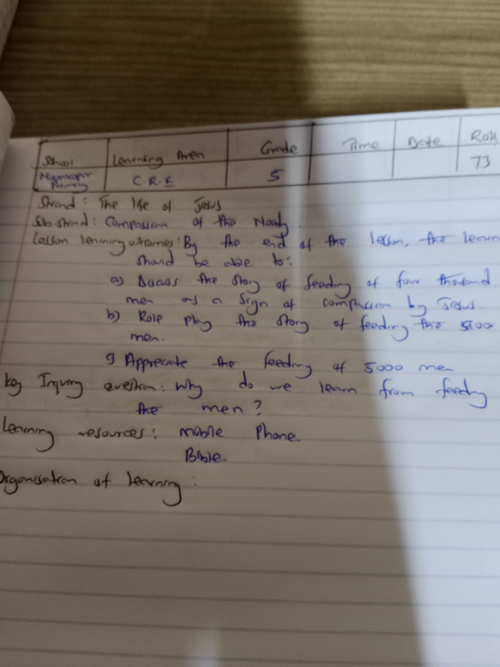 School Learning Area Grade Time Date Roll
Primary C.R.E 5 73
Strand: The life of Jesus
Sub strand: Compassion of the Needy.
Lesson learning outcomes: By the end of the lesson, the learner
should be able to:
a) Discuss the story of feeding of four thousand
men as a sign of compassion by Jesus.
b) Role play the story of feeding the
men.
Appreciate the feeding of 5000 men
key Inquiry question: why do we learn from feeding
the men?
Learning resources: mobile Phone.
Bible.
Organisation of learning: